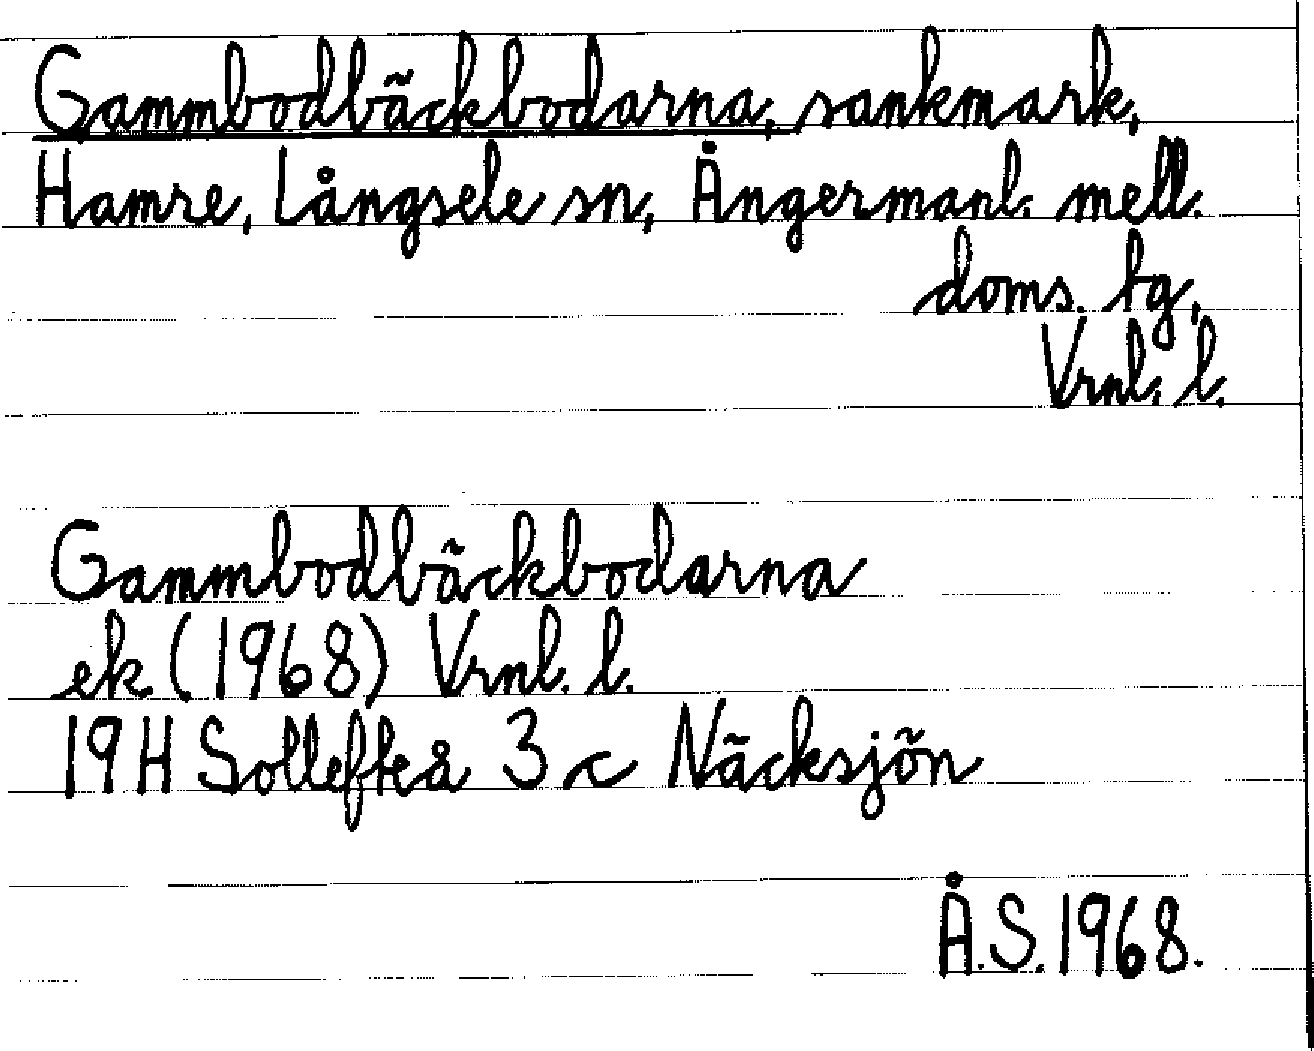 Gammbodbäckbodarna, sankmark,
Hamre, Långsele sn, Ångermanl. mell.
doms. tg,
Vrnl. l.
Gammbodbäckbodarna
ek (1968) Vrnl. l.
19H Sollefteå 3 c Näcksjön
Å.S. 1968.